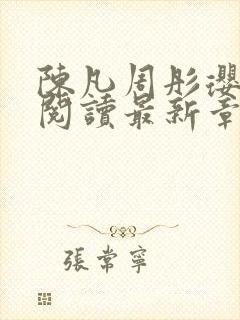 陳凡周彤瓔
閱讀最新章
張常寧